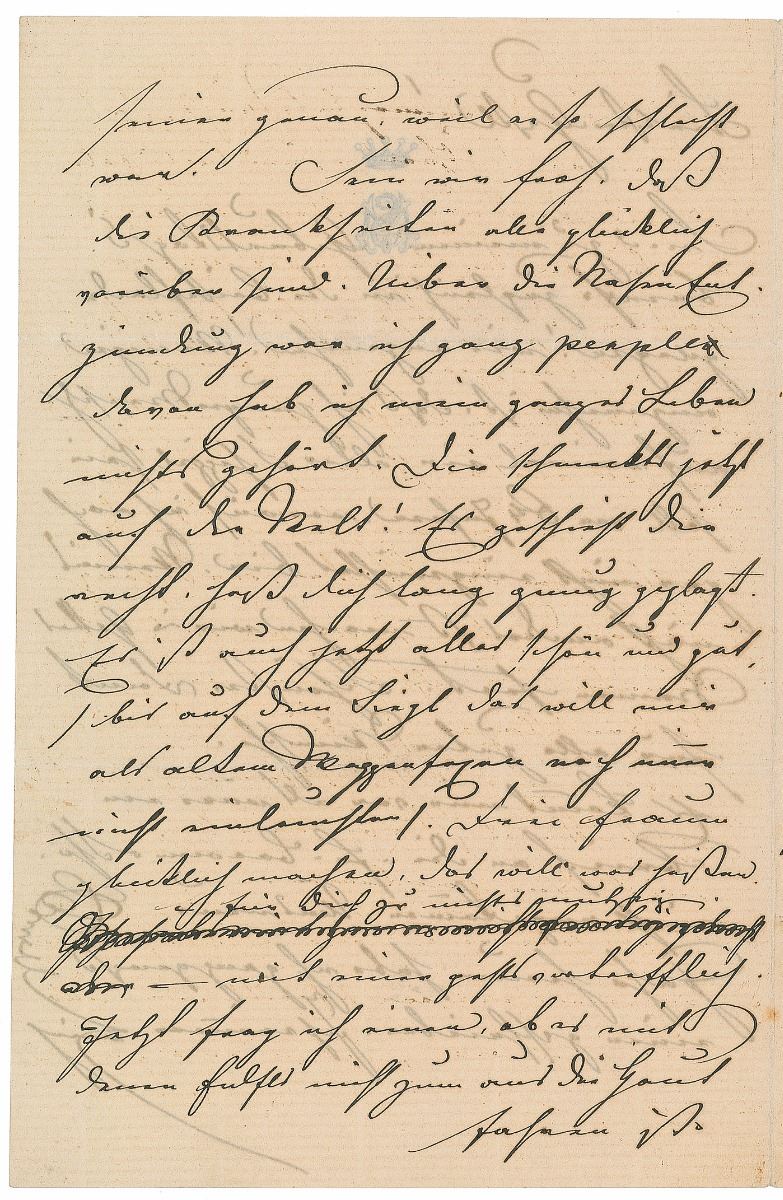 seiner genau, weil er so schlecht
war. Sein wir froh, daß
die Krankheiten alle glücklich
vorüber sind. Ueber die Nasenent-
zündung war ich ganz perplex
davon hab ich mein ganzes Leben
nichts gehört. Dir schmeckts jetzt
auf der Welt! Es geschieht dir
recht, hast dich lang genug geplagt.
Es ist auch jetzt alles schön und gut,
/ bis auf dein Siegl das will mir
als altem Wappenfexen noch immer
nicht einleuchten /. Drei Frauen
glücklich machen, das will was heißen
für dich zu nichts
— mit einer gehts vortrefflich.
Jetzt frag ich einen, ob es mit
denen nicht zum aus der Haut
fahren ist.